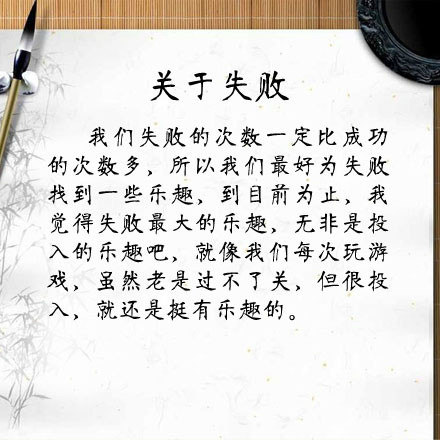 关于失败
我们失败的次数一定比成功
的次数多，所以我们最好为失败
找到一些乐趣，到目前为止，我
觉得失败最大的乐趣，无非是投
入的乐趣吧，就像我们每次玩游
戏，虽然老是过不了关，但很投
入，就还是挺有乐趣的。